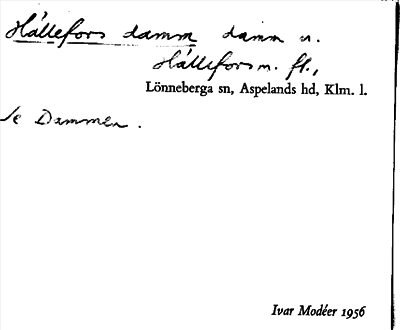 Hällefors damm damm n.
Hällefors m. fl.,
Lönneberga sn, Aspelands hd, Klm. l.
Se Dammen.
Ivar Modéer 1956